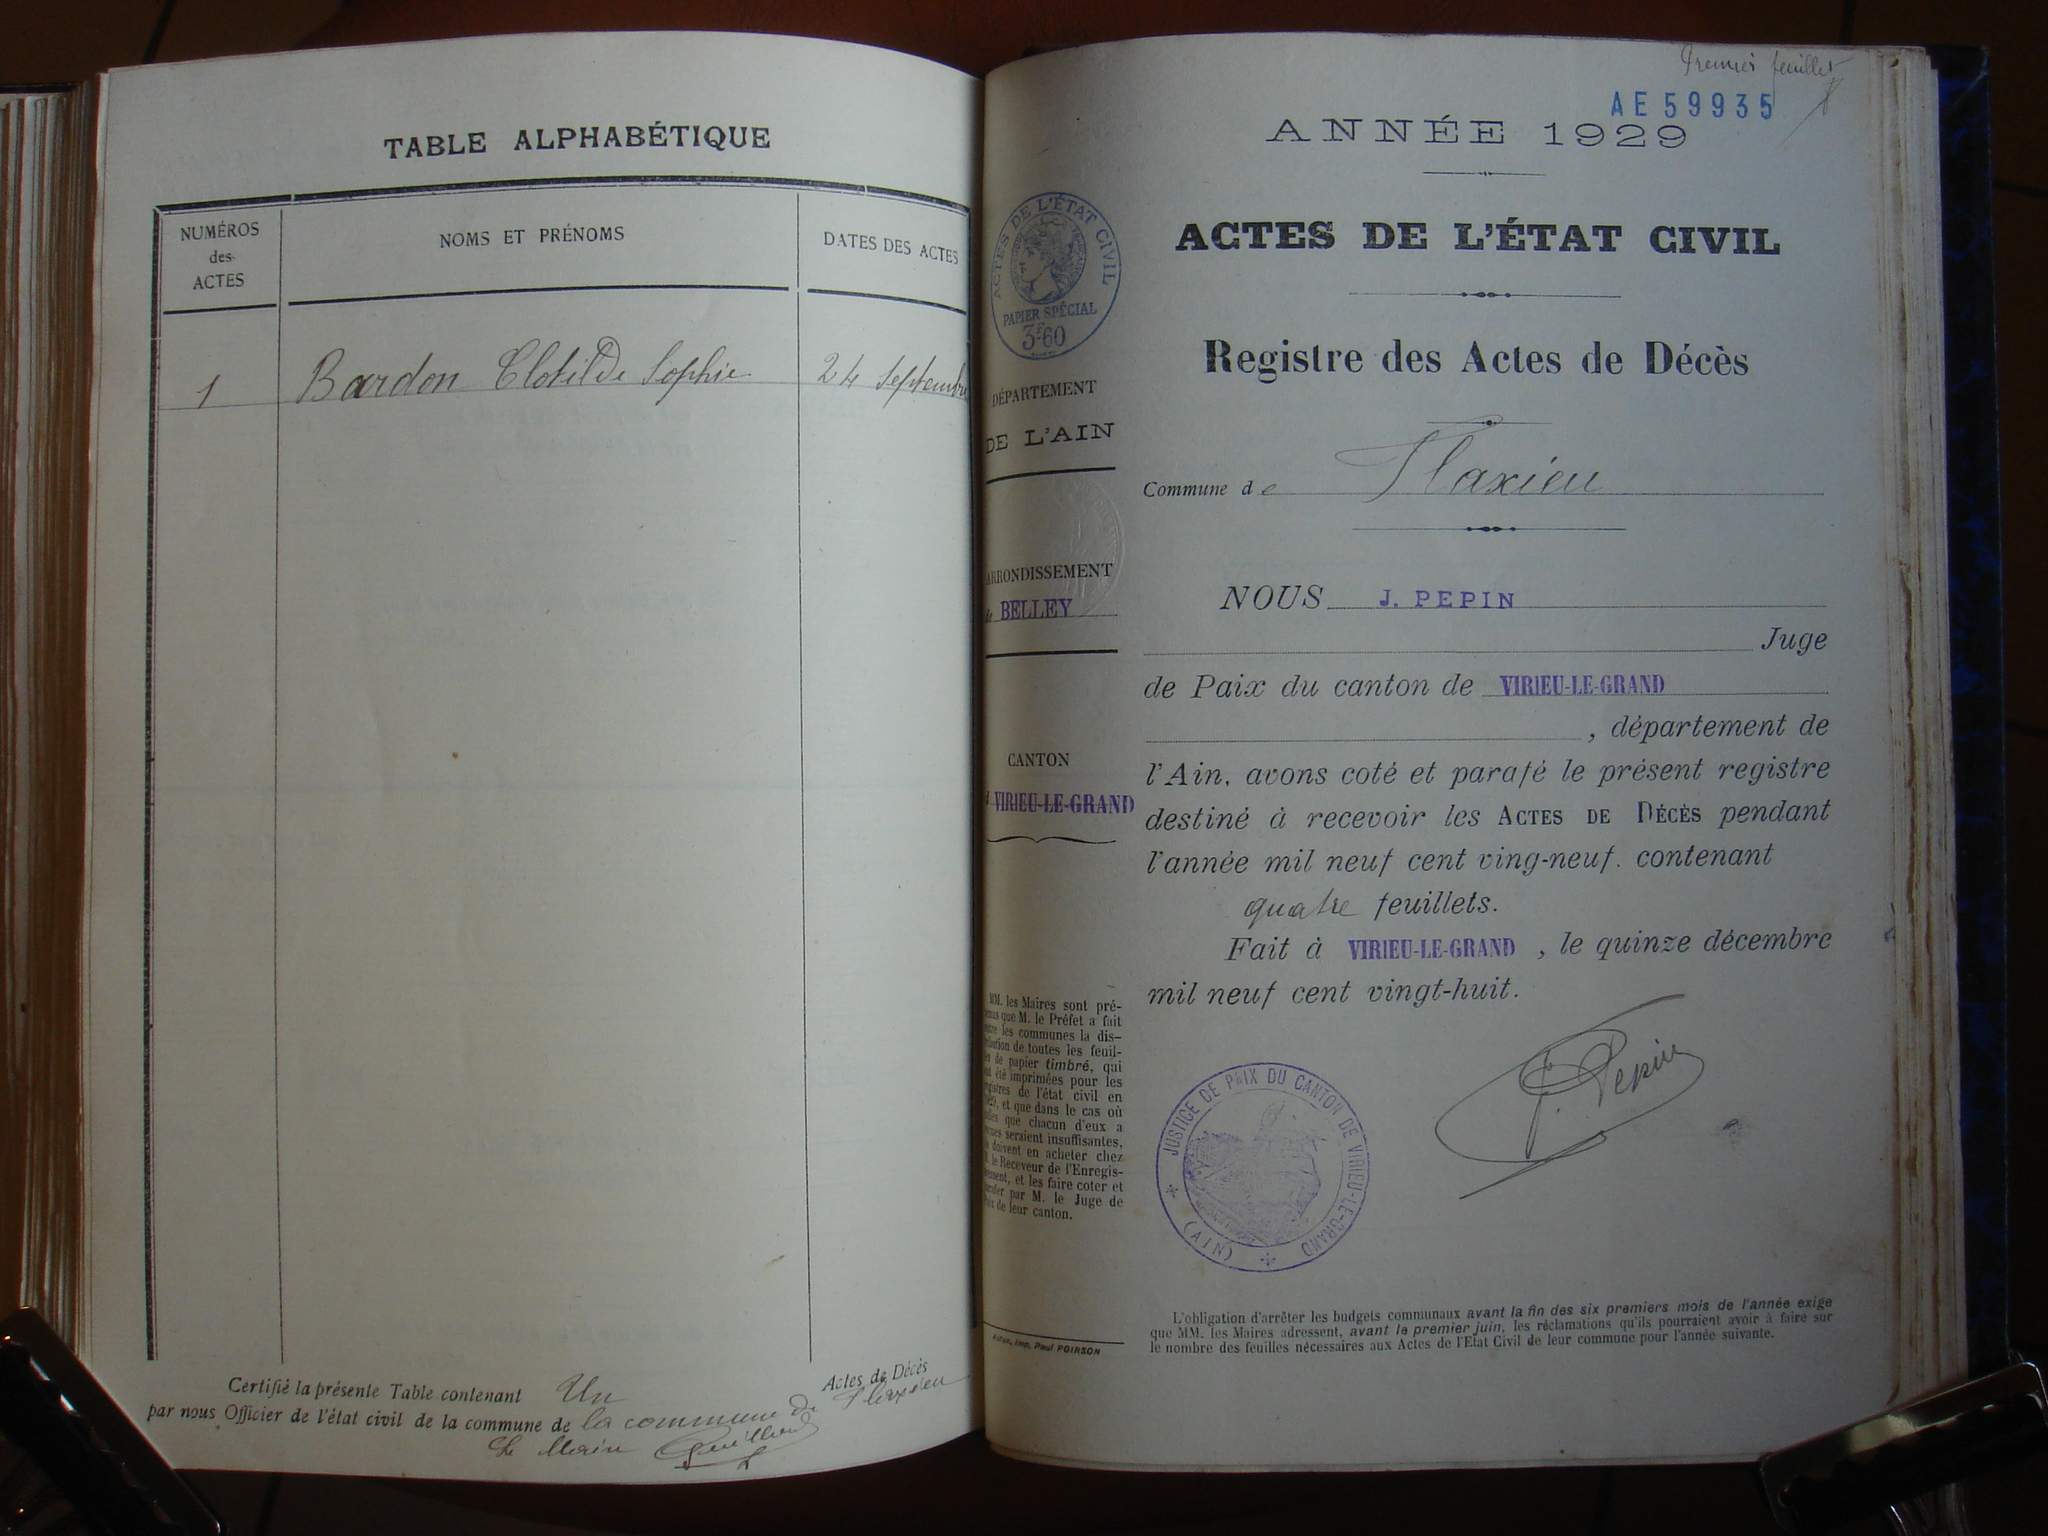 TABLE ALPHABÉTIQUE
NUMÉROS
des
ACTES
NOMS ET PRÉNOMS
DATES DES ACTES
1 Bardon Clotilde Sophie 24 septembre
Certifié la présente Table contenant Un Actes de Décès
par nous Officier de l'état civil de la commune de la commune de Flaxieu
Le Maire
Premier feuillet
AE 59935
ANNÉE 1929
ACTES DE L'ÉTAT CIVIL
Registre des Actes de Décès
Commune de Flaxieu
NOUS J. PEPIN
Juge
de Paix du canton de VIRIEU-LE-GRAND
, département de
l'Ain, avons coté et parafé le présent registre
destiné à recevoir les ACTES DE DÉCÈS pendant
l'année mil neuf cent ving-neuf. contenant
quatre feuillets.
Fait à VIRIEU-LE-GRAND, le quinze décembre
mil neuf cent vingt-huit.
J. Pepin
JUSTICE DE PAIX DU CANTON DE VIRIEU-LE-GRAND
* (AIN) *
L'obligation d'arrêter les budgets communaux avant la fin des six premiers mois de l'année exige
que MM. les Maires adressent, avant le premier juin, les réclamations qu'ils pourraient avoir à faire sur
le nombre des feuilles nécessaires aux Actes de l'Etat Civil de leur commune pour l'année suivante.
ACTES DE L'ÉTAT CIVIL
PAPIER SPÉCIAL
3F60
DÉPARTEMENT
DE L'AIN
ARRONDISSEMENT
de BELLEY
CANTON
VIRIEU-LE-GRAND
MM. les Maires sont pré-
que M. le Préfet a fait
les communes la dis-
de toutes les feuil-
de papier timbré, qui
été imprimées pour les
de l'état civil en
et que dans le cas où
que chacun d'eux a
seraient insuffisantes,
doivent en acheter chez
le Receveur de l'Enregis-
et les faire coter et
par M. le Juge de
de leur canton.
Imp. Paul POIRSON